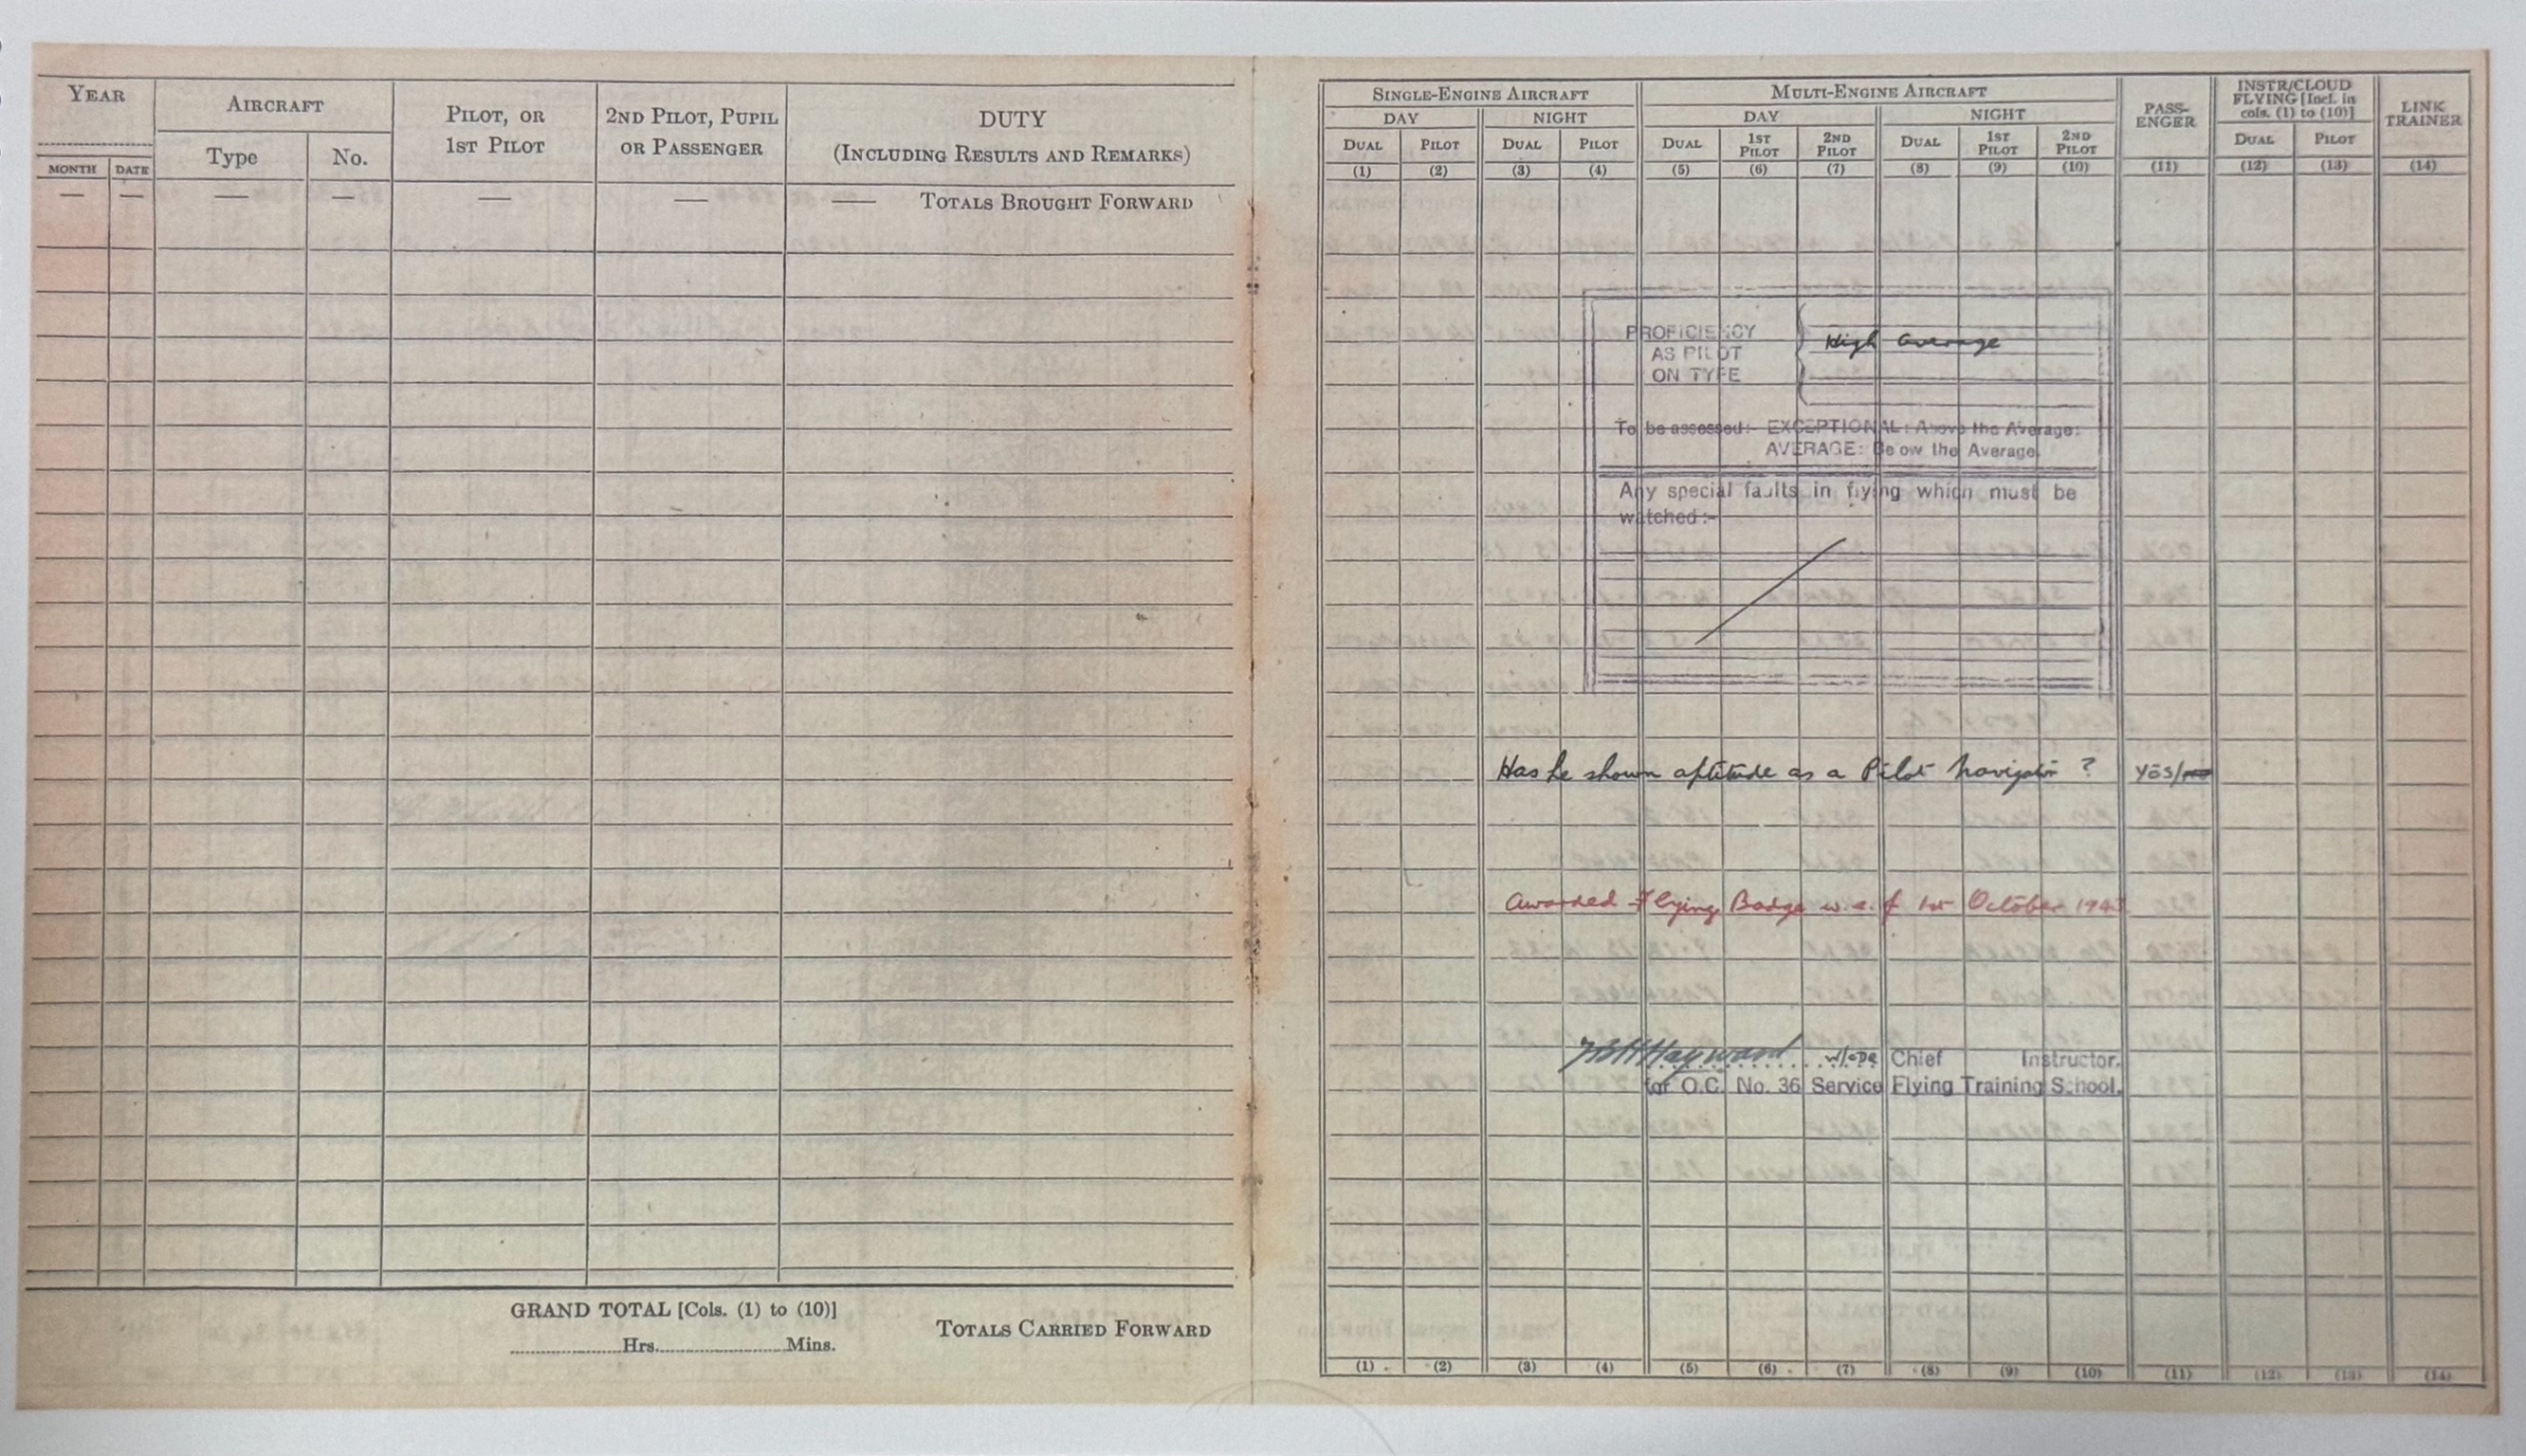 YEAR
AIRCRAFT
PILOT, OR
1ST PILOT
2ND PILOT, PUPIL
OR PASSENGER
DUTY
(INCLUDING RESULTS AND REMARKS)
MONTH DATE Type No.
— — — — — — — TOTALS BROUGHT FORWARD
GRAND TOTAL [Cols. (1) to (10)]
Hrs. Mins.
TOTALS CARRIED FORWARD
SINGLE-ENGINE AIRCRAFT
MULTI-ENGINE AIRCRAFT
PASS-
ENGER
INSTR/CLOUD
FLYING [Incl. in
cols. (1) to (10)]
LINK
TRAINER
DAY NIGHT DAY NIGHT
DUAL PILOT DUAL PILOT DUAL 1ST PILOT 2ND PILOT DUAL 1ST PILOT 2ND PILOT DUAL PILOT
(1) (2) (3) (4) (5) (6) (7) (8) (9) (10) (11) (12) (13) (14)
PROFICIENCY
AS PILOT
ON TYPE
High Average
To be assessed:- EXCEPTIONAL: Above the Average:
AVERAGE: Below the Average
Any special faults in flying which must be
watched:-
Has he shown aptitude as a Pilot Navigator ? YES/NO
Awarded Flying Badge w.e.f 1st October
Hayward W/CDR Chief Instructor.
for O.C. No. 36 Service Flying Training School.
(1) (2) (3) (4) (5) (6) (7) (8) (9) (10) (11) (12) (13) (14)